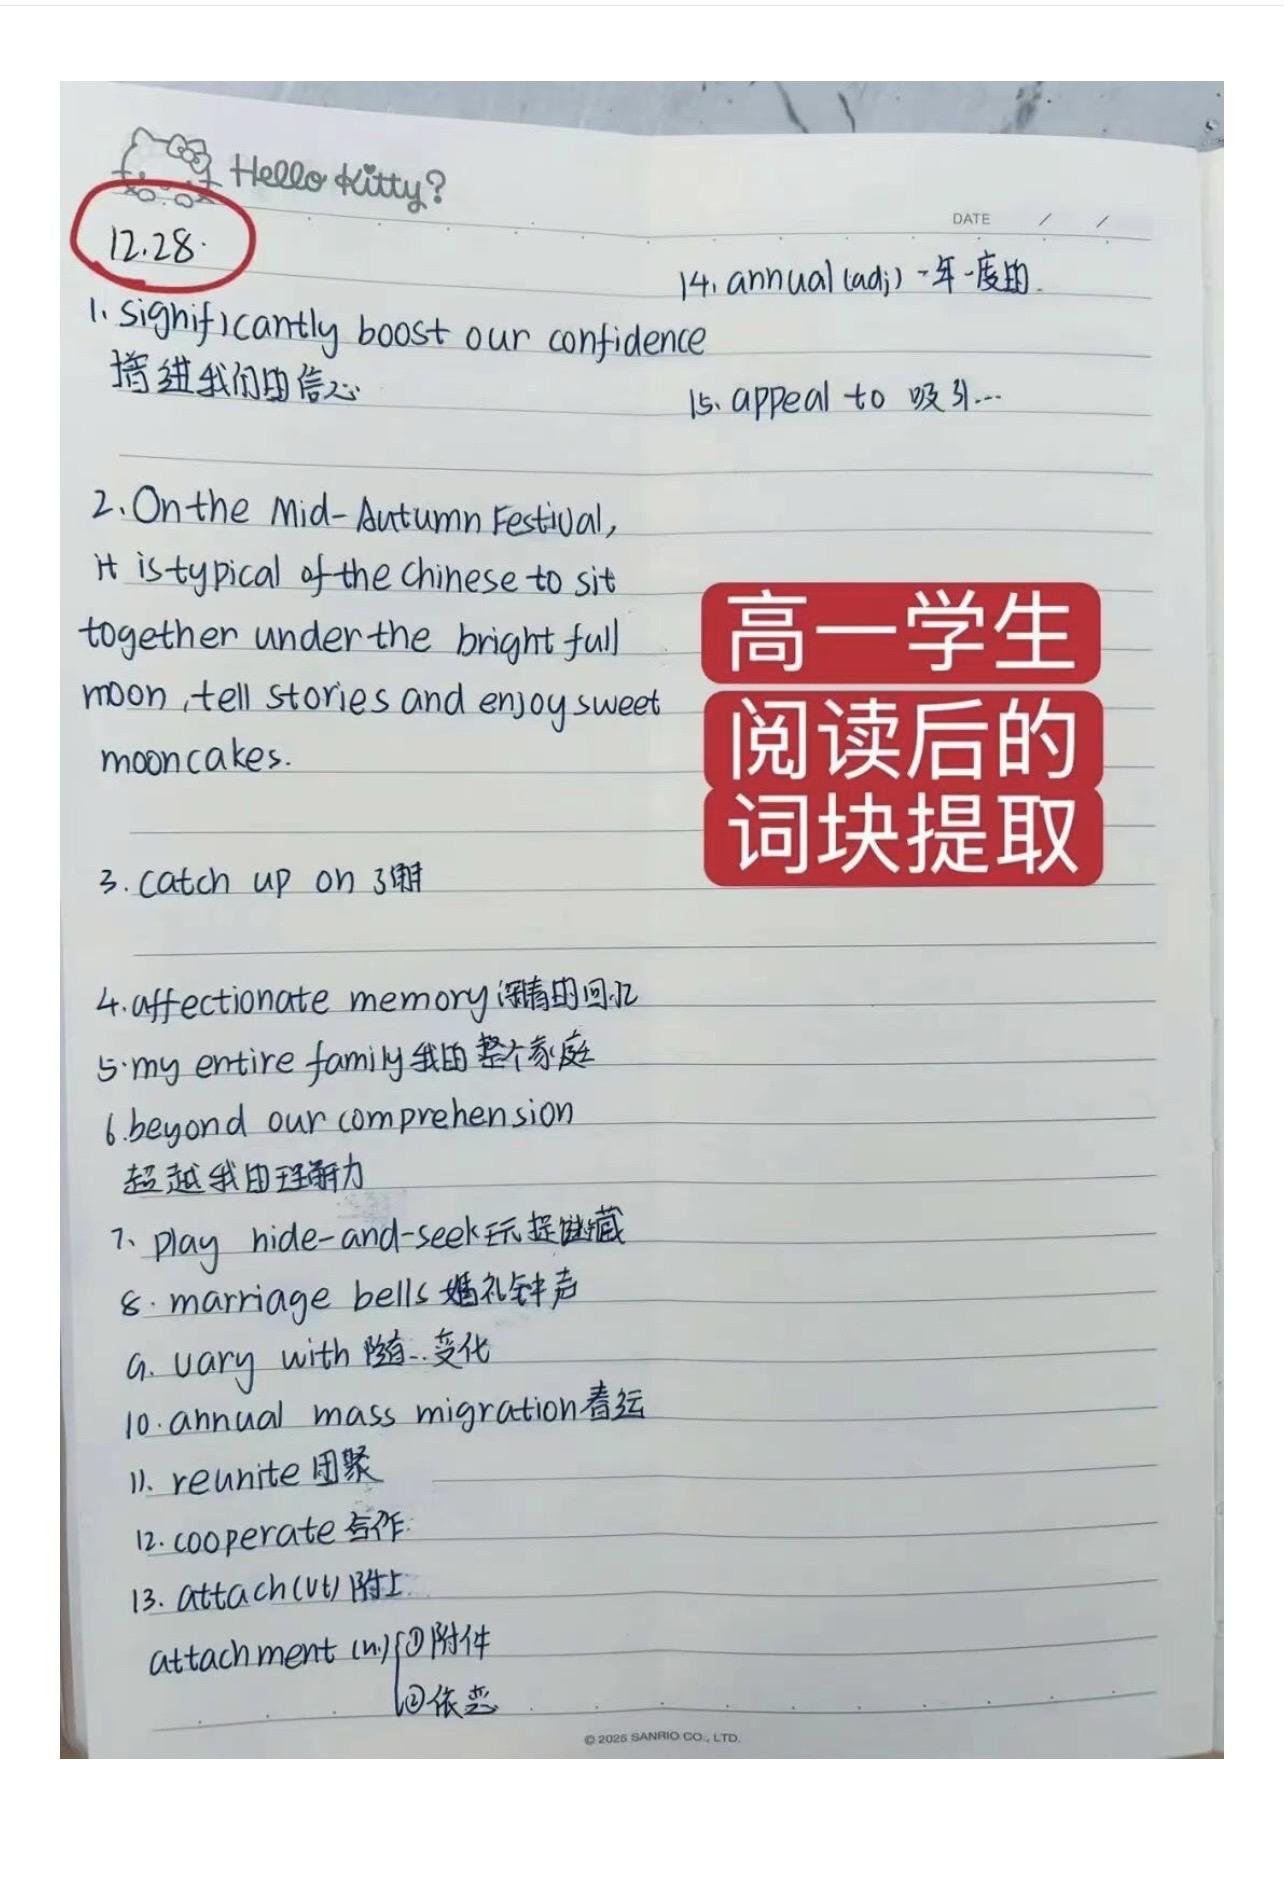 Hello Kitty?
12.28.
1. significantly boost our confidence
增进我们的信心
2. On the Mid-Autumn Festival,
it is typical of the Chinese to sit
together under the bright full
moon, tell stories and enjoy sweet
mooncakes.
3. catch up on 了解
4. affectionate memory 深情的回忆
5. my entire family 我的整个家庭
6. beyond our comprehension
超越我的理解力
7. play hide-and-seek 玩捉迷藏
8. marriage bells 婚礼钟声
9. vary with 随着...变化
10. annual mass migration 春运
11. reunite 团聚
12. cooperate 合作
13. attach (vt) 附上
attachment (n.) ① 附件
② 依恋
DATE / /
14. annual (adj) 一年一度的.
15. appeal to 吸引...
高一学生
阅读后的
词块提取
© 2025 SANRIO CO., LTD.